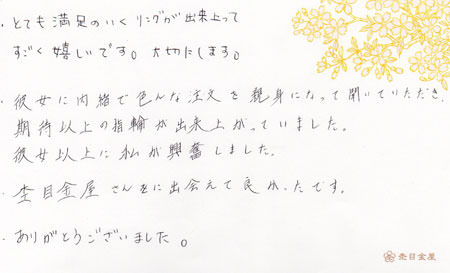 ・とても満足のいくリングが出来上って
すごく嬉しいです。大切にします。
・彼女に内緒で色んな注文を親身になって聞いていただき、
期待以上の指輪が出来上がっていました。
彼女以上に私が興奮しました。
・杢目金屋さんに出会えて良かったです。
・ありがとうございました。
杢目金屋